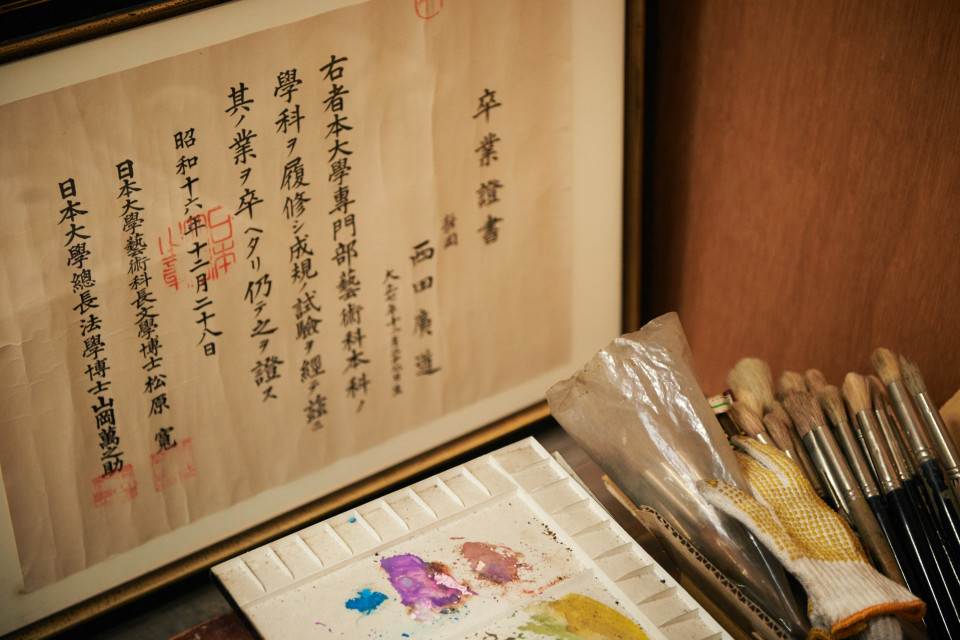 卒業證書
西田廣道
右者本大學專門部藝術科本科ノ
學科ヲ履修シ成規ノ試驗ヲ經テ茲ニ
其ノ業ヲ卒ヘタリ仍テ之ヲ證ス
昭和十六年十二月二十八日
日本大學藝術科長文學博士松原 寛
日本大學總長法學博士山岡萬之助